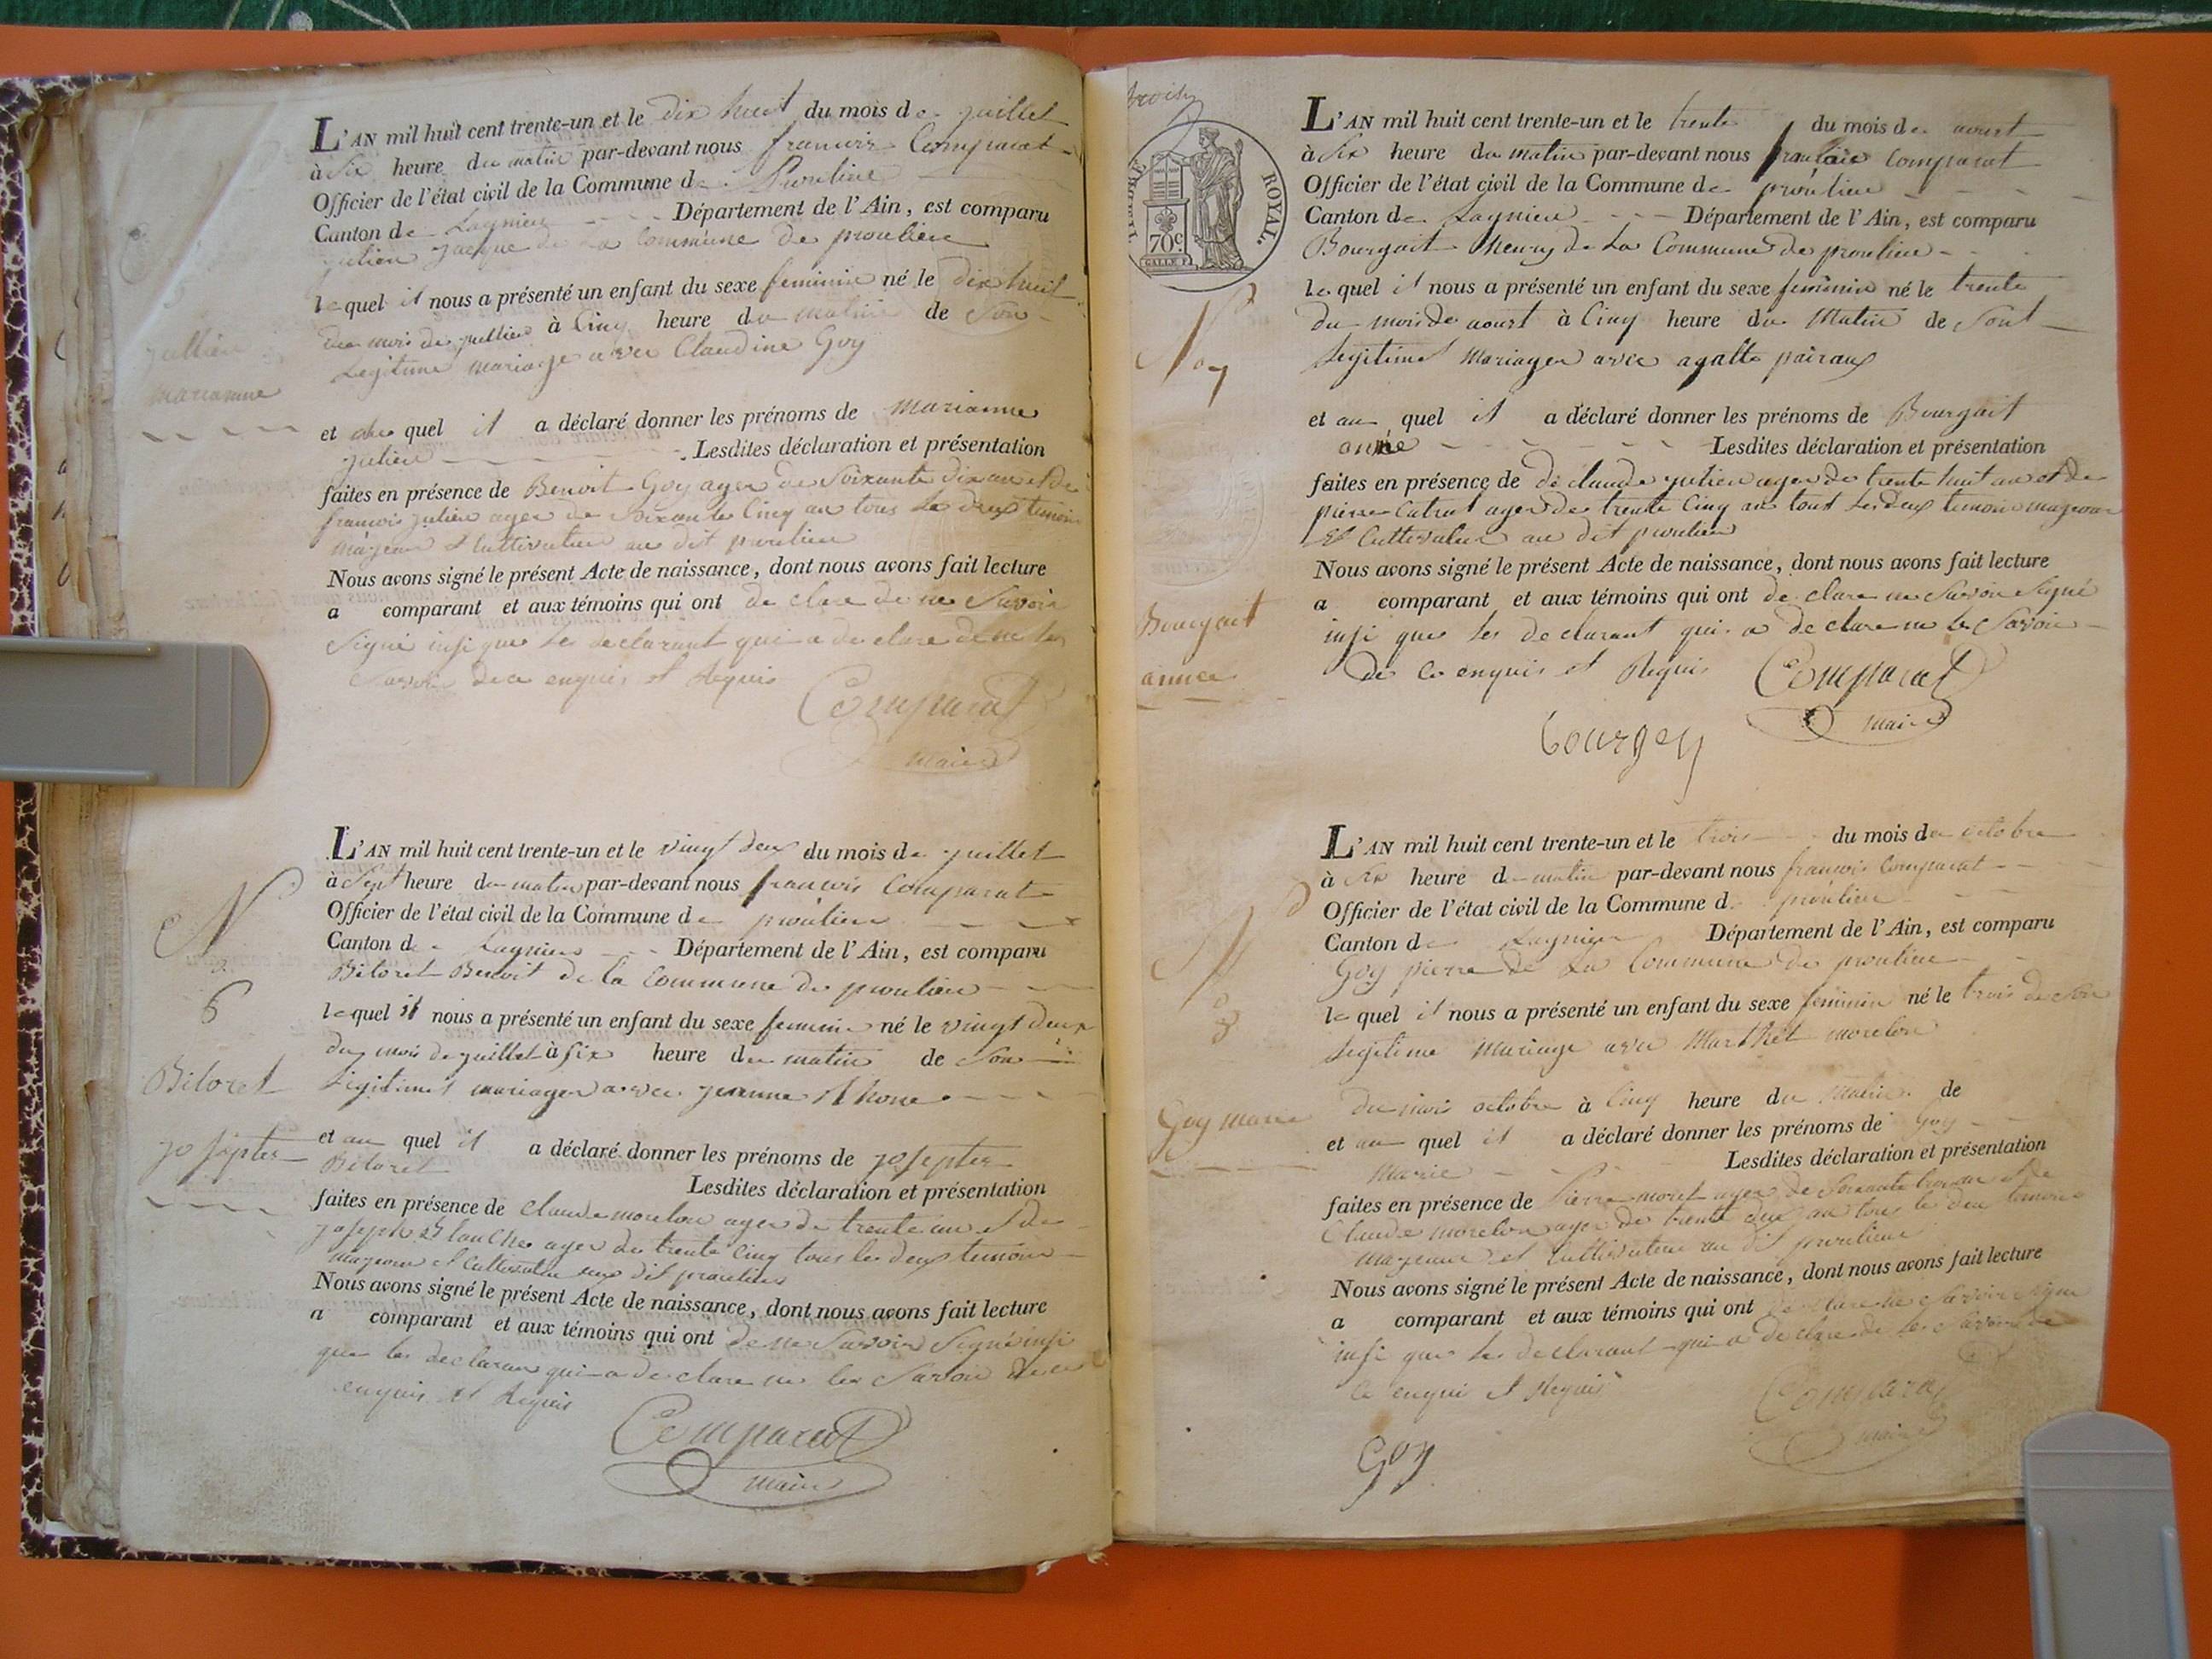 L'AN mil huit cent trente-un et le dix huit du mois de juillet
à Six heure du matin par-devant nous francois Comparat
Officier de l'état civil de la Commune de Proulieu
Canton de Lagnieu Département de l'Ain, est comparu
julien jacque de La Commune de proulieu
lequel il nous a présenté un enfant du sexe feminin né le dix huit
du mois de juillier à Cinq heure du matin de Son
Legitime mariage avec Claudine Goy
jullien
marianne
et au quel il a déclaré donner les prénoms de marianne
julien Lesdites déclaration et présentation
faites en présence de Benoit Goy ager de Soixante dix an et de
francois julien ager de Soixante Cinq an tous Le deux temoin
majeur et Cultivateur au dit proulieu
Nous avons signé le présent Acte de naissance, dont nous avons fait lecture
a comparant et aux témoins qui ont de clare de ne Savoir
Signé insi que Le declarant qui a de clare de ne Le
Savoir de ce enquis et Requis
Comparat
maire
L'AN mil huit cent trente-un et le vingt deux du mois de juillet
à Sept heure du matin par-devant nous francois Comparat
Officier de l'état civil de la Commune de proulieu
Canton de Lagnieu Département de l'Ain, est comparu
Biloret Benoit de la Commune de proulieu
N
6
Biloret
josepter
lequel il nous a présenté un enfant du sexe feminin né le vingt deux
du mois de juillet à Six heure du matin de Son
Legitime mariager avec jeanne
et au quel il a déclaré donner les prénoms de josepter
Biloret Lesdites déclaration et présentation
faites en présence de Claude morelon ager de trente an et de
joseph ager de trente Cinq tous les deux temoin
majeur et Cultivateur au dit proulieu
Nous avons signé le présent Acte de naissance, dont nous avons fait lecture
a comparant et aux témoins qui ont de ne Savoir Signé insi
que le declarant qui a de clare ne le Savoir de ce
enquis et Requis
Comparat
maire
TIMBRE ROYAL.
70c.
L'AN mil huit cent trente-un et le trente du mois de aoust
à Six heure du matin par-devant nous francois Comparat
Officier de l'état civil de la Commune de proulieu
Canton de Lagnieu Département de l'Ain, est comparu
Bourgait henry de La Commune de proulieu
lequel il nous a présenté un enfant du sexe feminin né le trente
du mois de aoust à Cinq heure du Matin de Sont
Legitime Mariager avec agatte pairaux
No 7
Bourgait
annee
et au quel il a déclaré donner les prénoms de Bourgait
annee Lesdites déclaration et présentation
faites en présence de de claude julien ager de trente huit an et de
pierre Catrat ager de trente Cinq an tout Les deux temoin majeur
Et Cultivateur au dit proulieu
Nous avons signé le présent Acte de naissance, dont nous avons fait lecture
a comparant et aux témoins qui ont de clare ne Savoir Signé
insi que Les declarant qui a declare ne le Savoir
de ce enquis et Requis
Comparat
maire
bourgey
L'AN mil huit cent trente-un et le trois du mois de octobre
à Six heure du matin par-devant nous francois Comparat
Officier de l'état civil de la Commune d. proulieu
Canton de Lagnieu Département de l'Ain, est comparu
Goy pierre de La Commune de proulieu
lequel il nous a présenté un enfant du sexe feminin né le trois de Son
Legitime Mariage avec morelon
8
Goy marie
du mois octobre à Cinq heure du Matin de
et au quel il a déclaré donner les prénoms de Goy
Marie Lesdites déclaration et présentation
faites en présence de Pierre moret ager de Soixante an et de
Claude morelon ager de trente an tous le deu temoin
majeur et Cultivateur au dit proulieu
Nous avons signé le présent Acte de naissance, dont nous avons fait lecture
a comparant et aux témoins qui ont de clare ne Savoir Signe
insi que Le declarant qui a declare de Le Savoir de
ce enqui et Requis
Comparat
maire
Goy